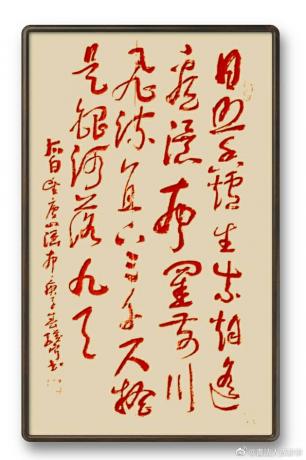 日照香爐生紫烟遙
看瀑布罣前川
飛流直下三千尺疑
是銀河落九天
李白望廬山瀑布庚子春书